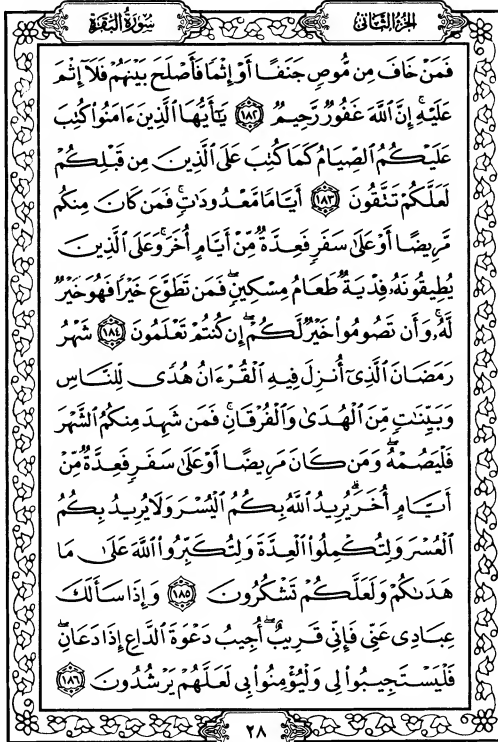 الجزء الثاني
سورة البقرة
فَمَنْ خَافَ مِن مُّوصٍ جَنَفًا أَوْ إِثْمًا فَأَصْلَحَ بَيْنَهُمْ فَلَآ إِثْمَ
عَلَيْهِ ۚ إِنَّ اللَّهَ غَفُورٌ رَّحِيمٌ ١٨٢ يَٰٓأَيُّهَا الَّذِينَ ءَامَنُوا۟ كُتِبَ
عَلَيْكُمُ الصِّيَامُ كَمَا كُتِبَ عَلَى الَّذِينَ مِن قَبْلِكُمْ
لَعَلَّكُمْ تَتَّقُونَ ١٨٣ أَيَّامًا مَّعْدُودَٰتٍ ۚ فَمَن كَانَ مِنكُم
مَّرِيضًا أَوْ عَلَىٰ سَفَرٍ فَعِدَّةٌ مِّنْ أَيَّامٍ أُخَرَ ۚ وَعَلَى الَّذِينَ
يُطِيقُونَهُۥ فِدْيَةٌ طَعَامُ مِسْكِينٍ ۖ فَمَن تَطَوَّعَ خَيْرًا فَهُوَ خَيْرٌ
لَّهُۥ ۚ وَأَن تَصُومُوا۟ خَيْرٌ لَّكُمْ ۖ إِن كُنتُمْ تَعْلَمُونَ ١٨٤ شَهْرُ
رَمَضَانَ الَّذِىٓ أُنزِلَ فِيهِ الْقُرْءَانُ هُدًى لِّلنَّاسِ
وَبَيِّنَٰتٍ مِّنَ الْهُدَىٰ وَالْفُرْقَانِ ۚ فَمَن شَهِدَ مِنكُمُ الشَّهْرَ
فَلْيَصُمْهُ ۖ وَمَن كَانَ مَرِيضًا أَوْ عَلَىٰ سَفَرٍ فَعِدَّةٌ مِّنْ
أَيَّامٍ أُخَرَ ۗ يُرِيدُ اللَّهُ بِكُمُ الْيُسْرَ وَلَا يُرِيدُ بِكُمُ
الْعُسْرَ وَلِتُكْمِلُوا۟ الْعِدَّةَ وَلِتُكَبِّرُوا۟ اللَّهَ عَلَىٰ مَا
هَدَىٰكُمْ وَلَعَلَّكُمْ تَشْكُرُونَ ١٨٥ وَإِذَا سَأَلَكَ
عِبَادِى عَنِّى فَإِنِّى قَرِيبٌ ۖ أُجِيبُ دَعْوَةَ الدَّاعِ إِذَا دَعَانِ ۖ
فَلْيَسْتَجِيبُوا۟ لِى وَلْيُؤْمِنُوا۟ بِى لَعَلَّهُمْ يَرْشُدُونَ ١٨٦
٢٨